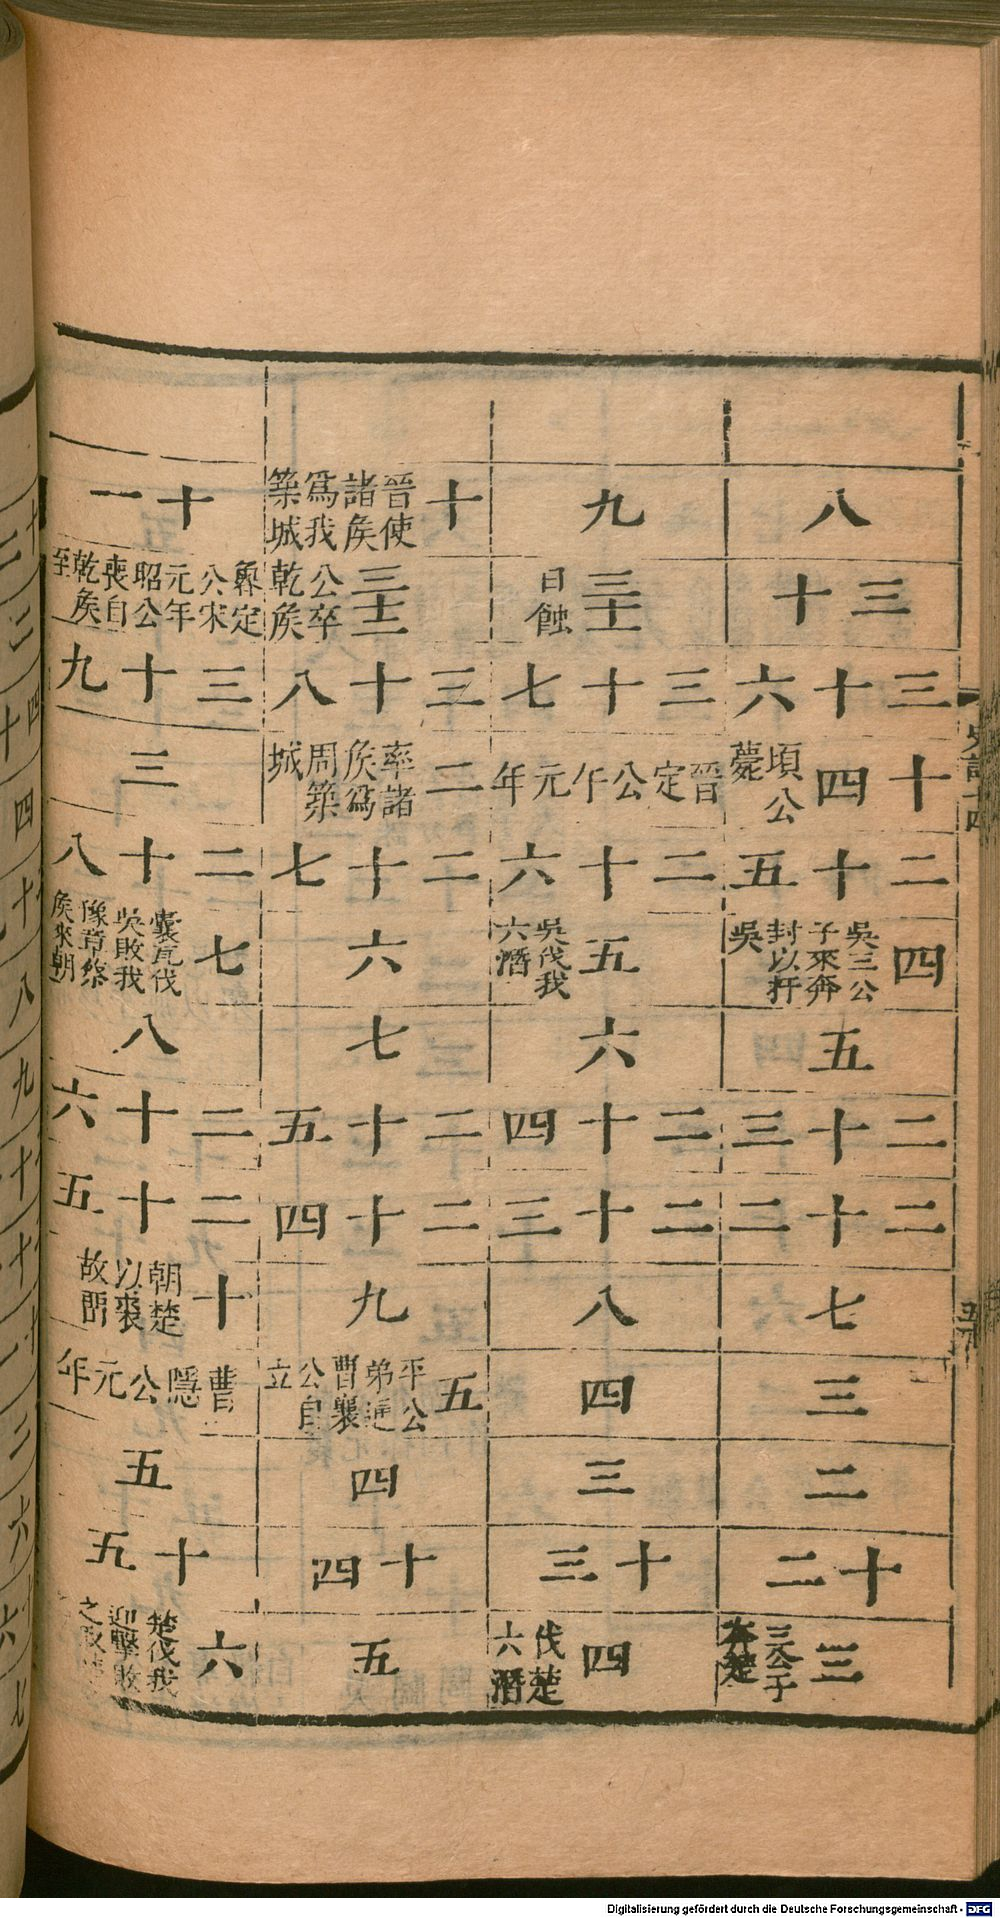 八
三十
三十六
十四 頃公薨
二十五
四 吳三公子來奔封以扞吳
五
二十三
二十二
七
三
二
十二
三 三公子奔楚
九
三十一 日蝕
三十七
晉定公午元年
二十六
五 吳伐我六潛
六
二十四
二十三
八
四
三
十三
四 伐楚六潛
十 晉使諸侯爲我築城
三十二 公卒乾侯
三十八
二 率諸侯爲周築城
二十七
六
七
二十五
二十四
九
五 平公弟通弒襄公自立
四
十四
五
十一
魯定公宋元年 昭公喪自乾侯至
三十九
三
二十八
七 囊瓦伐吳敗我豫章蔡侯來朝
八
二十六
二十五
十 朝楚以裘故留
曹隱公元年
五
十五
六 楚伐我迎擊敗之取
史記十四
Digitalisierung gefördert durch die Deutsche Forschungsgemeinschaft - DFG